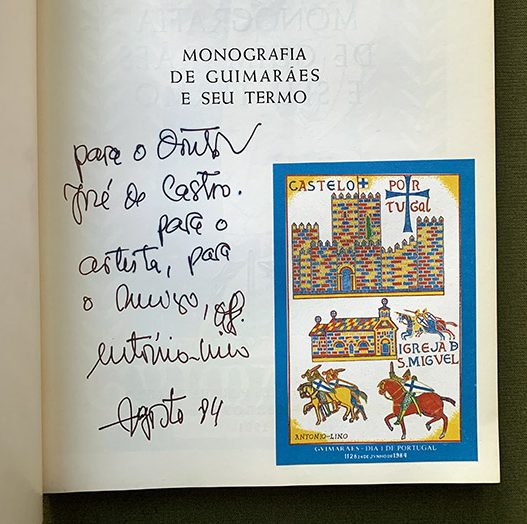 MONOGRAFIA
DE GUIMARÃES
E SEU TERMO
para o Doutor
José de Castro.
para o
artista, para
o Amigo, of.
António-Lino
Agosto 84
CASTELO POR
TUGAL
IGREJA D
S. MIGUEL
ANTONIO-LINO
GUIMARÃES - DIA 1 DE PORTUGAL
1128 24 DE JUNHO DE 1984